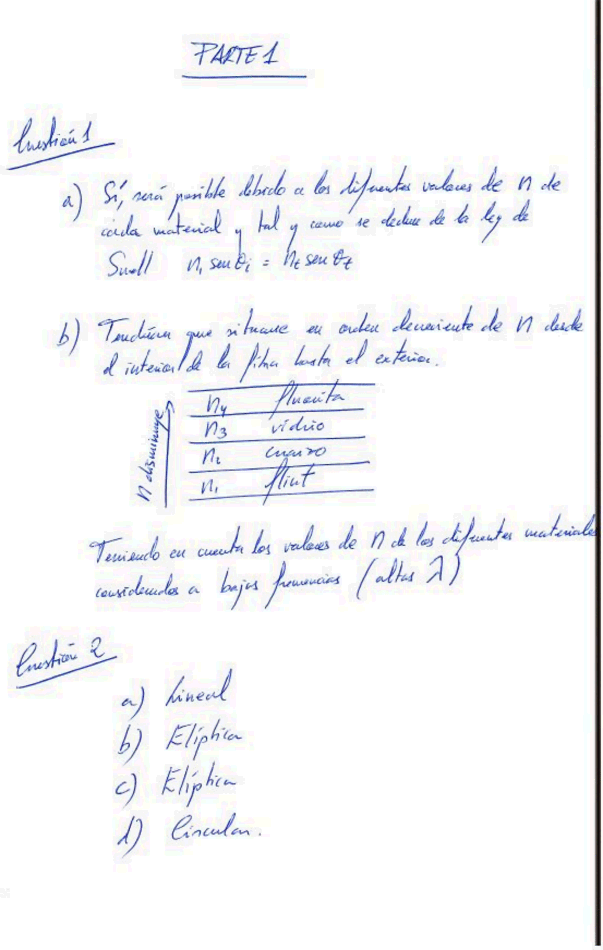 PARTE 1
Cuestión 1
a) Sí, será posible debido a los diferentes valores de n de
cada material y tal y como se deduce de la ley de
Snell n₁ sen θi = nt sen θt
b) Tendrían que situarse en orden decreciente de n desde
el interior de la fibra hasta el exterior.
n disminuye
n₄ fluorita
n₃ vidrio
n₂ cuarzo
n₁ flint
Teniendo en cuenta los valores de n de los diferentes materiales
considerados a bajas frecuencias (altas λ)
Cuestión 2
a) Lineal
b) Elíptica
c) Elíptica
d) Circular.